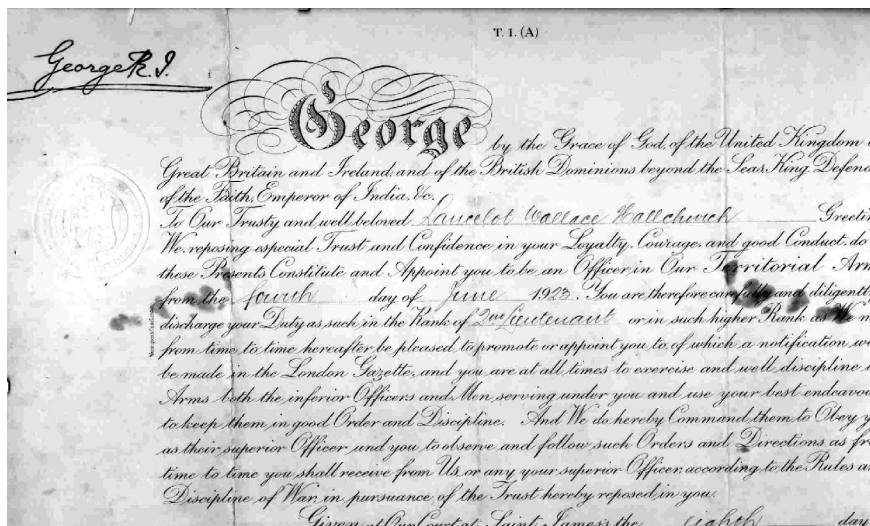 T. 1. (A)
George R. I.
George by the Grace of God, of the United Kingdom
Great Britain and Ireland, and of the British Dominions beyond the Seas, King, Defend
of the Faith, Emperor of India, &c.
To Our Trusty and well beloved Lancelot Wallace Greetin
We, reposing especial Trust and Confidence in your Loyalty, Courage, and good Conduct, do
these Presents Constitute and Appoint you to be an Officer in Our Territorial Arm
from the fourth day of June 1923. You are therefore carefully and diligently
discharge your Duty as such in the Rank of 2nd Lieutenant or in such higher Rank as We m
from time to time hereafter be pleased to promote or appoint you to, of which a notification wi
be made in the London Gazette, and you are at all times to exercise and well discipline i
Arms both the inferior Officers and Men serving under you and use your best endeavou
to keep them in good Order and Discipline. And We do hereby Command them to Obey y
as their superior Officer, and you to observe and follow such Orders and Directions as fro
time to time you shall receive from Us, or any your superior Officer, according to the Rules an
Discipline of War, in pursuance of the Trust hereby reposed in you.
Given at Our Court, at Saint James's the eighth day